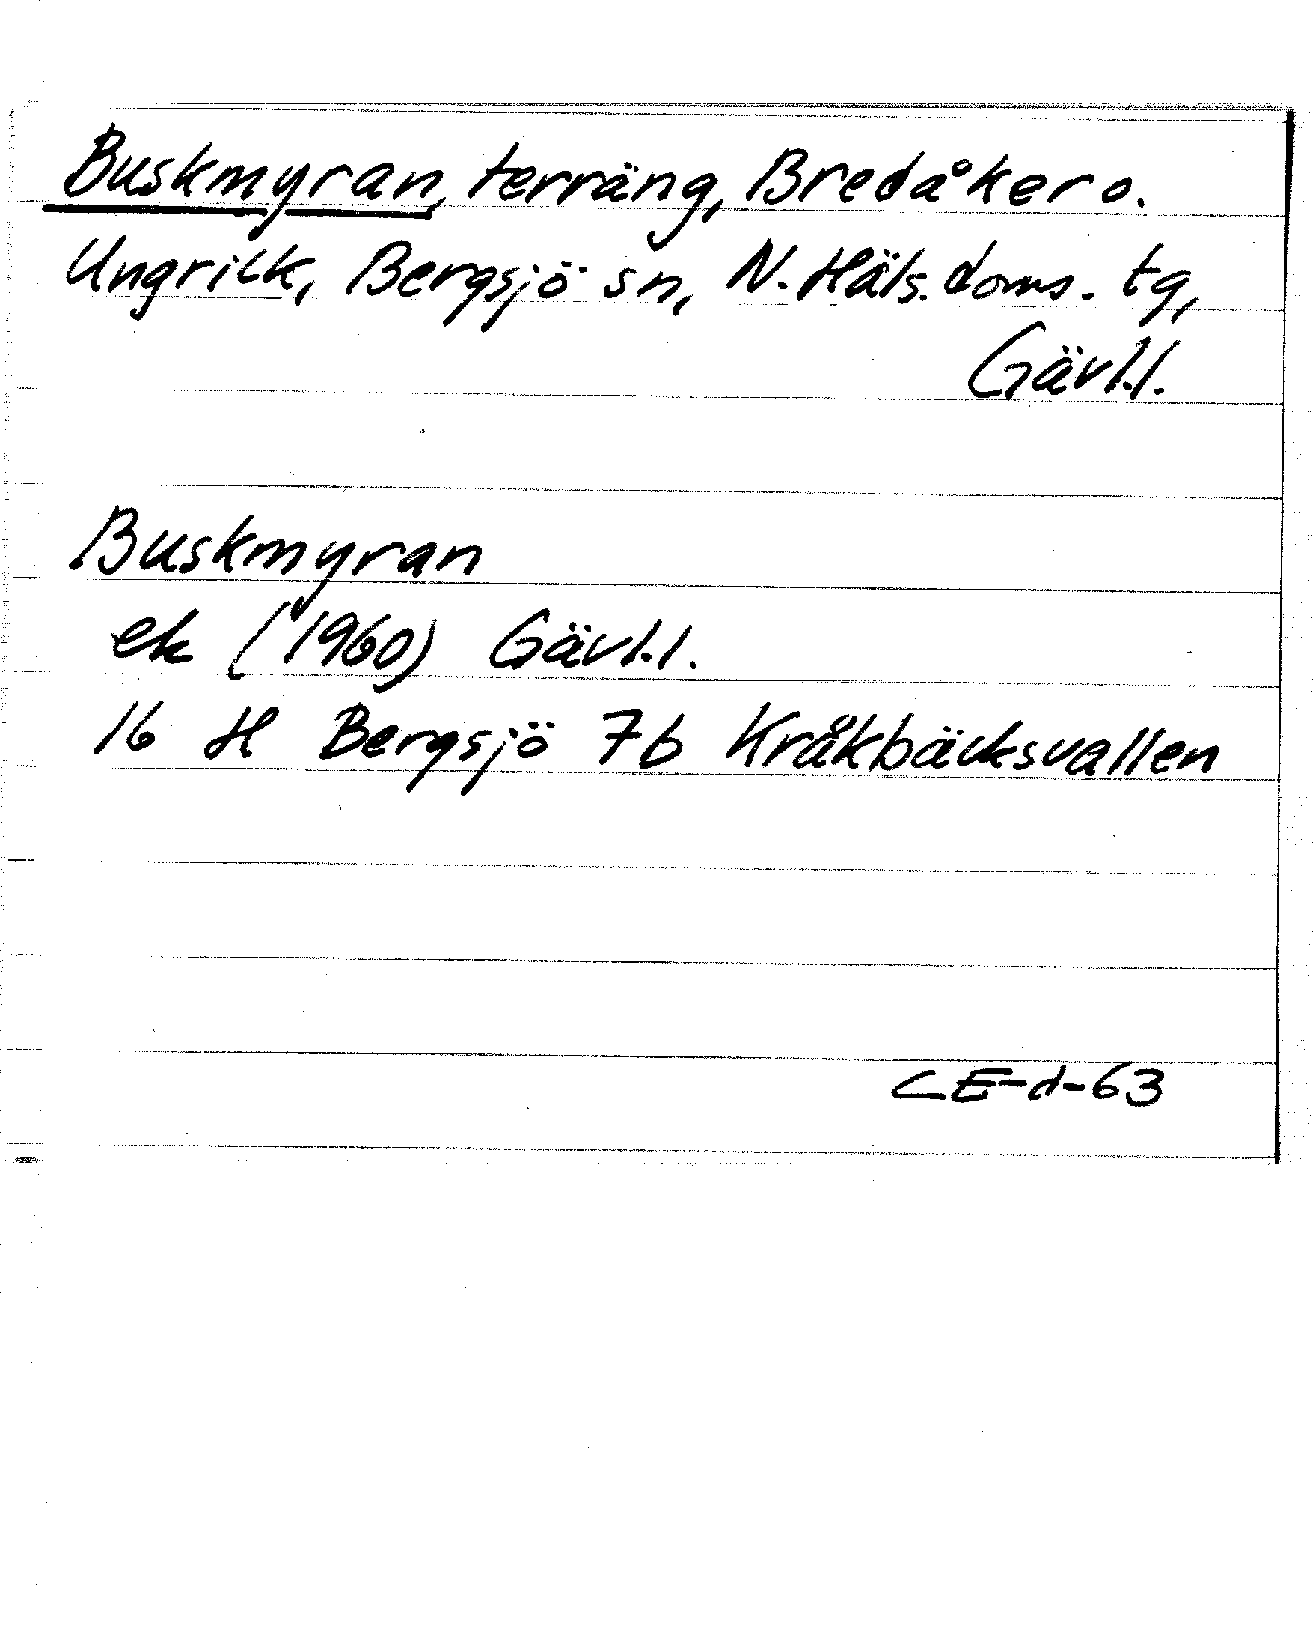 Buskmyran, terräng, Bredåker o.
Ungrick, Bergsjö sn, N. Häls. doms. tg,
Gävl.l.
Buskmyran
ek (1960) Gävl.l.
16 H Bergsjö 7b Kråkbäcksvallen
CE-d-63